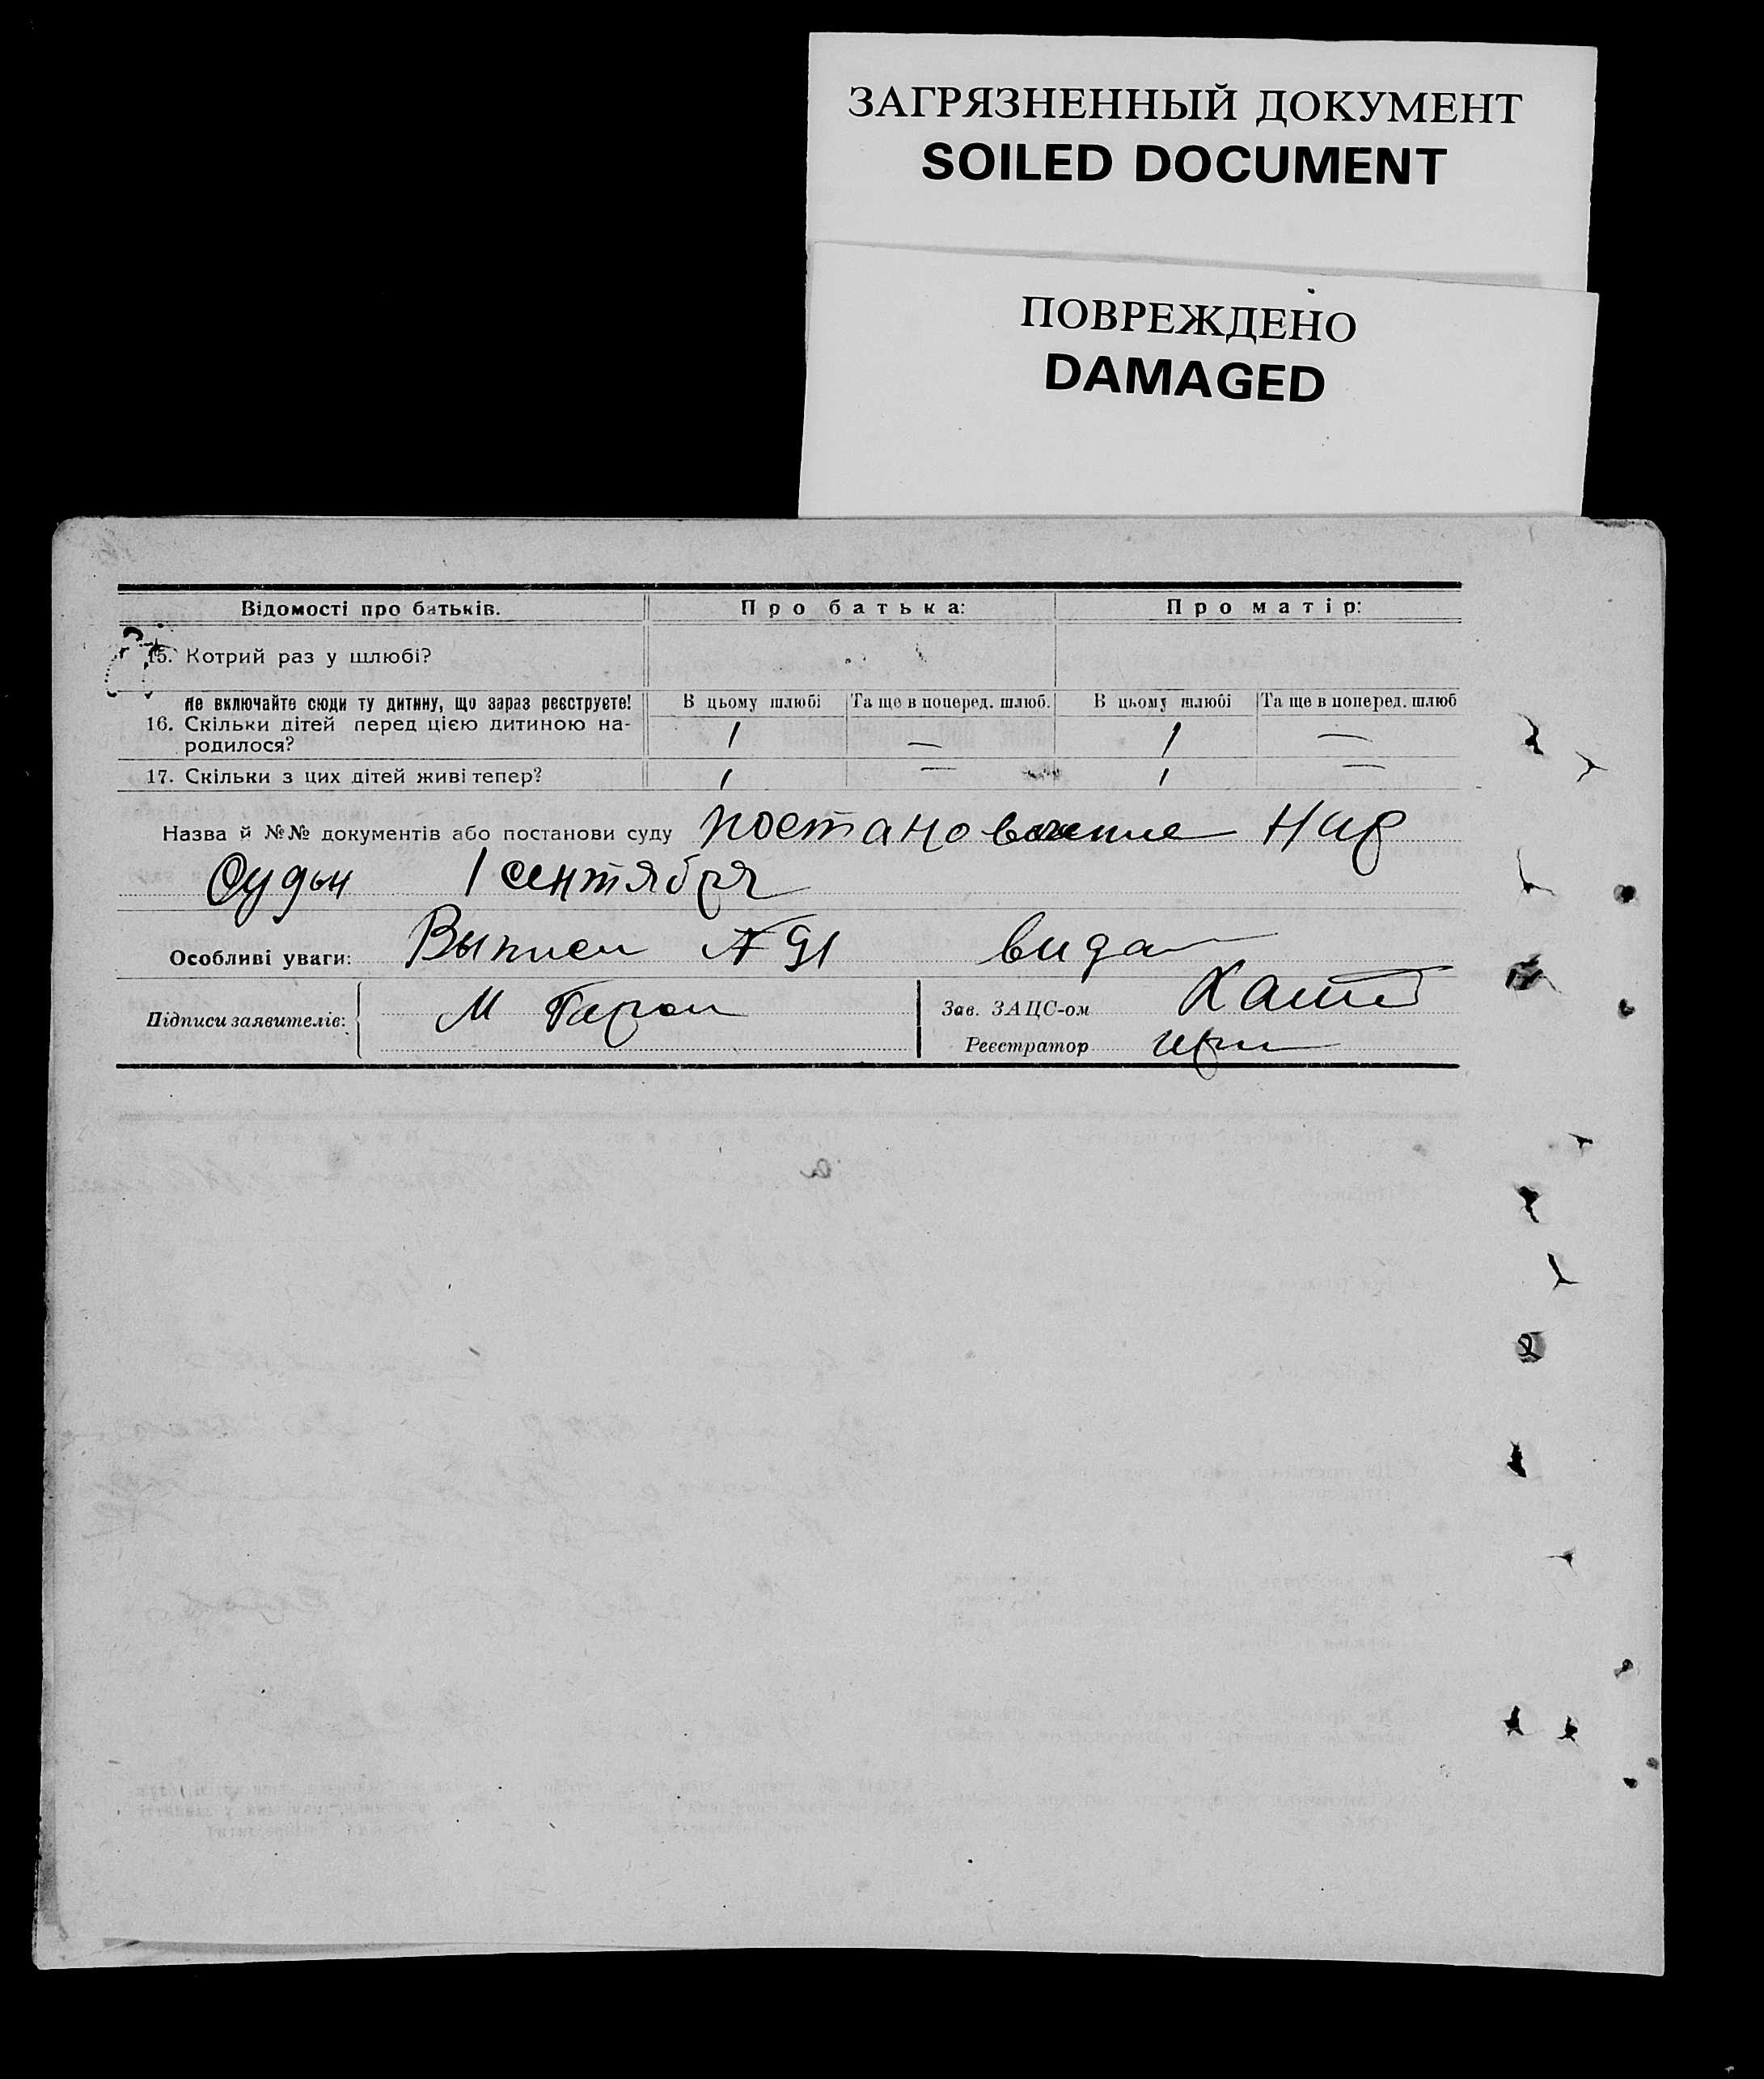 ЗАГРЯЗНЕННЫЙ ДОКУМЕНТ
SOILED DOCUMENT
ПОВРЕЖДЕНО
DAMAGED
Відомості про батьків. Про батька: Про матір:
15. Котрий раз у шлюбі?
Не включайте сюди ту дитину, що зараз реєструєте! В цьому шлюбі Та ще в поперед. шлюб. В цьому шлюбі Та ще в поперед. шлюб
16. Скільки дітей перед цією дитиною на-
родилося? 1 — 1 —
17. Скільки з цих дітей живі тепер? 1 — 1 —
Назва й №№ документів або постанови суду постановление Нар
Судьи 1 сентября
Особливі уваги: Выписи № 91 видан
Підписи заявителів: М
Зав. ЗАЦС-ом
Реєстратор